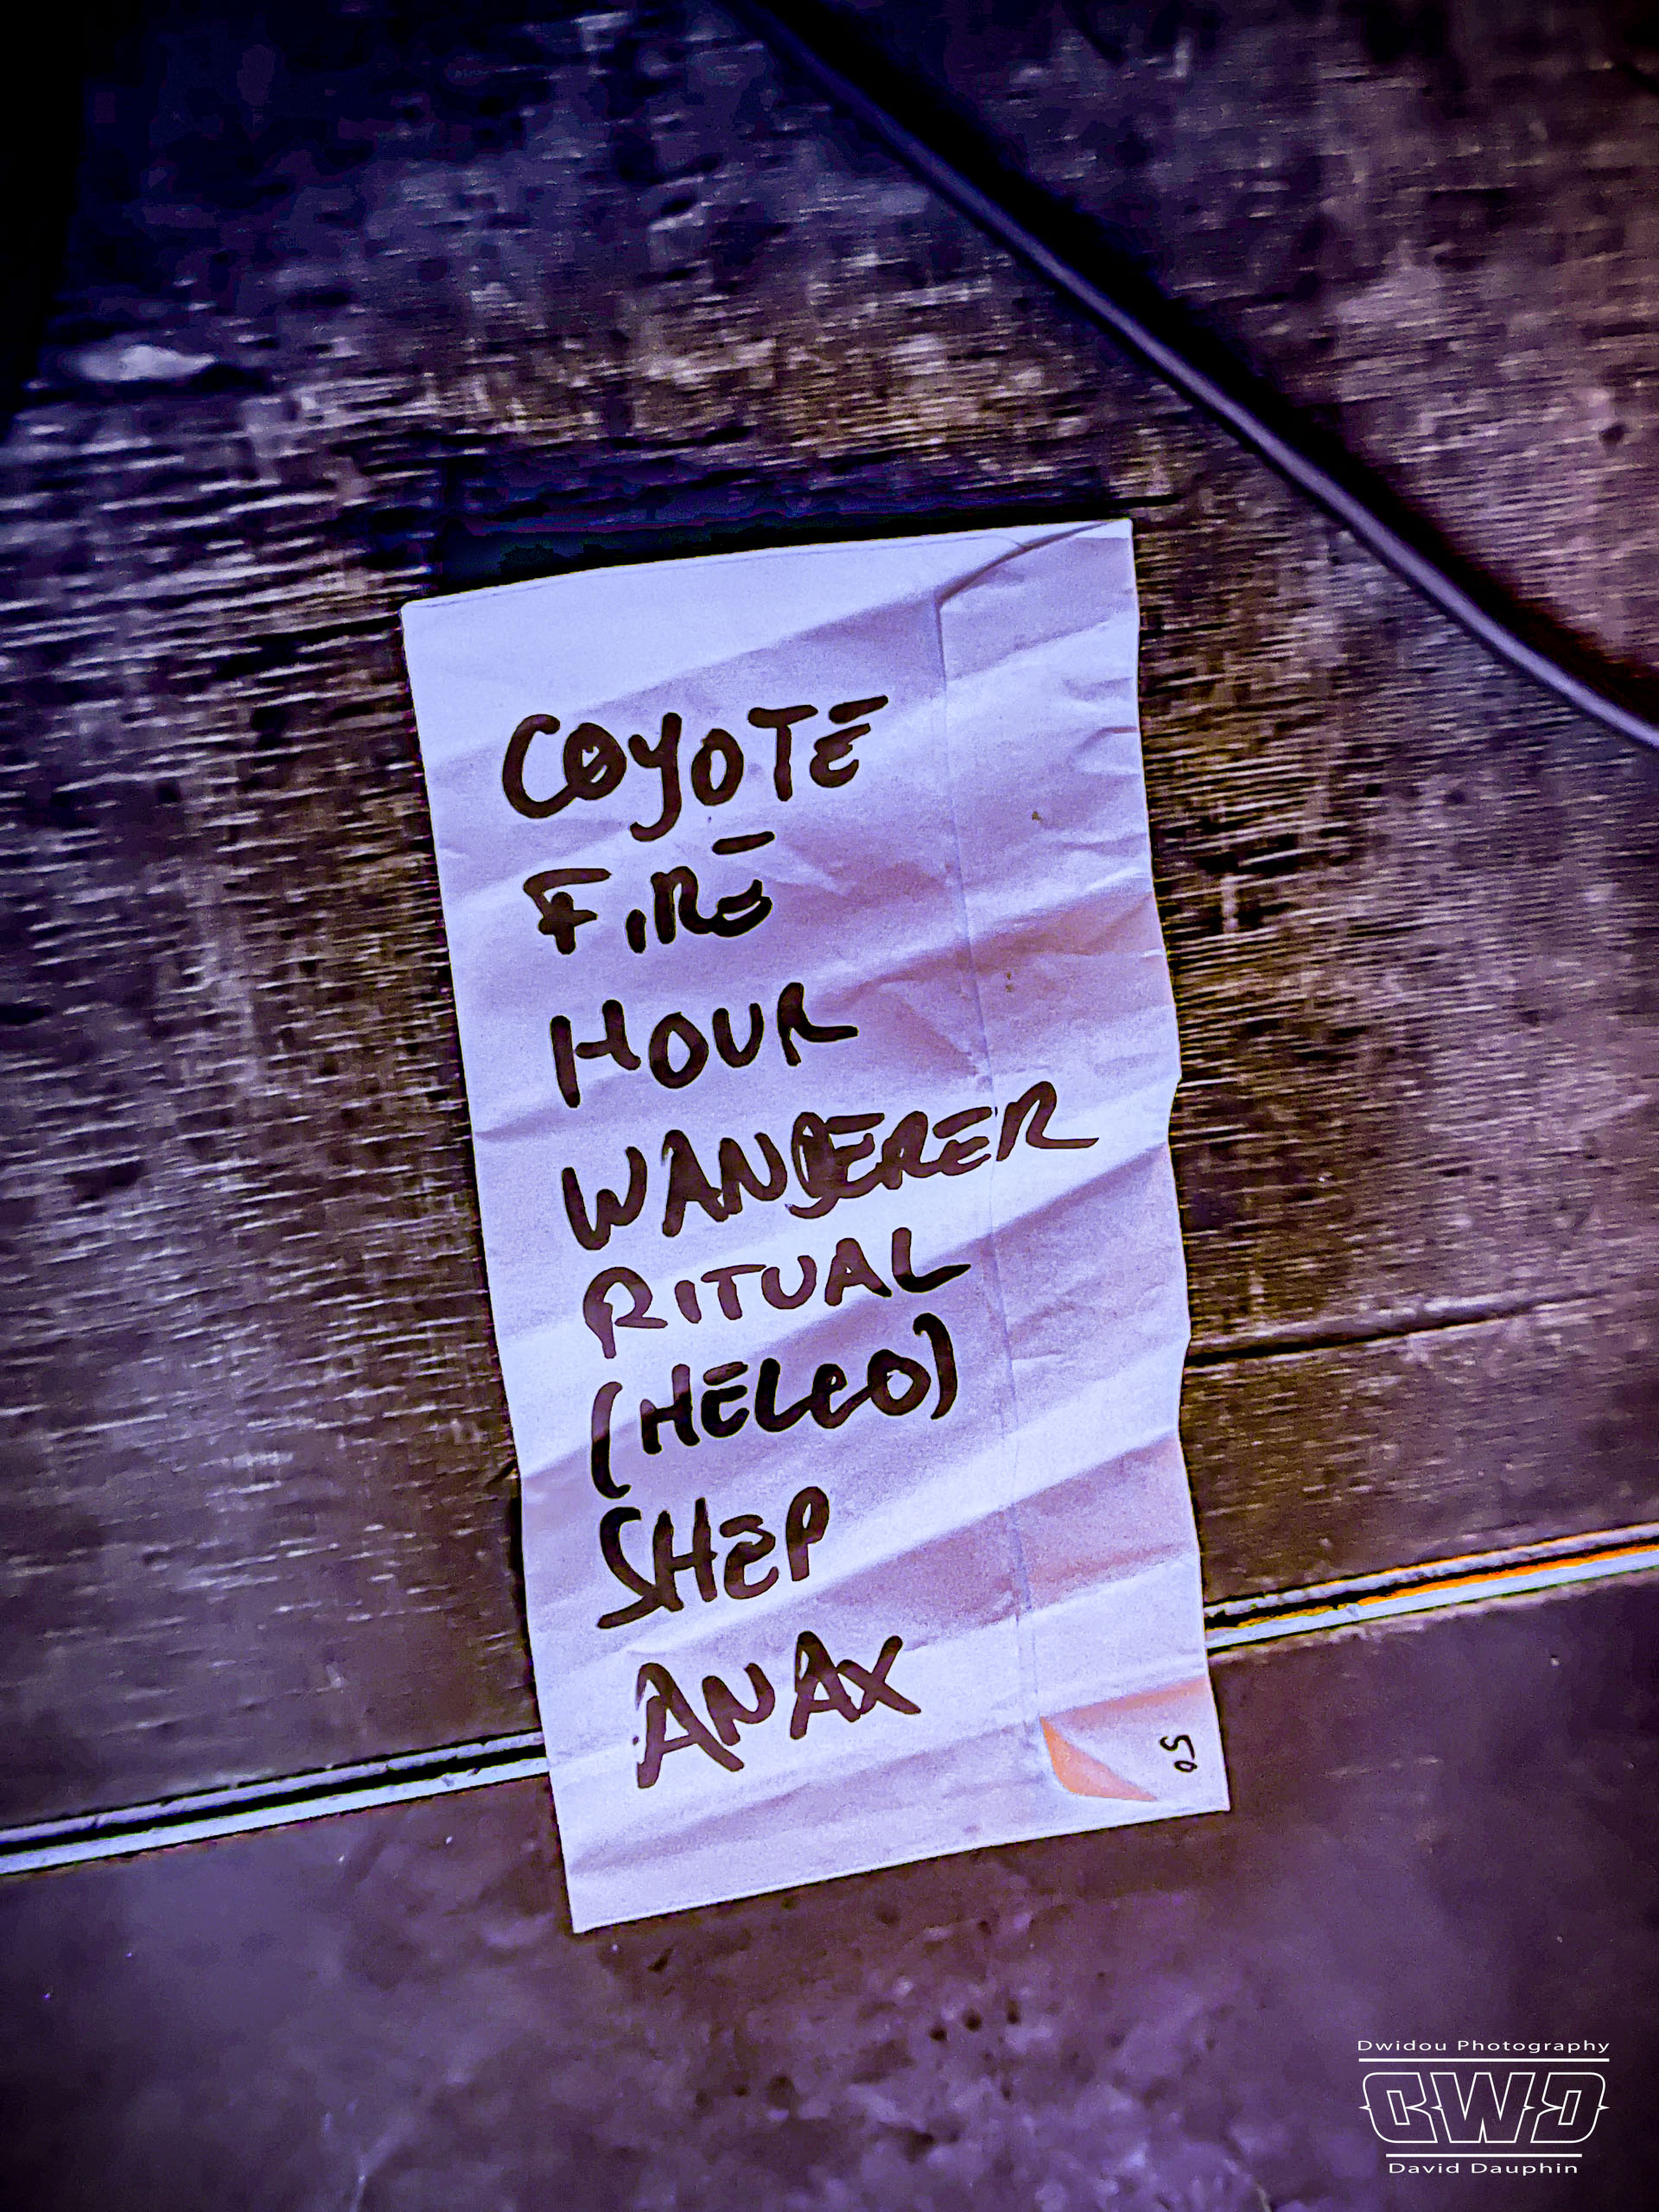 COYOTE
FIRE
HOUR
WANDERER
RITUAL
(HELLO)
SHEP
ANAX
Dwidou Photography
DWD
David Dauphin